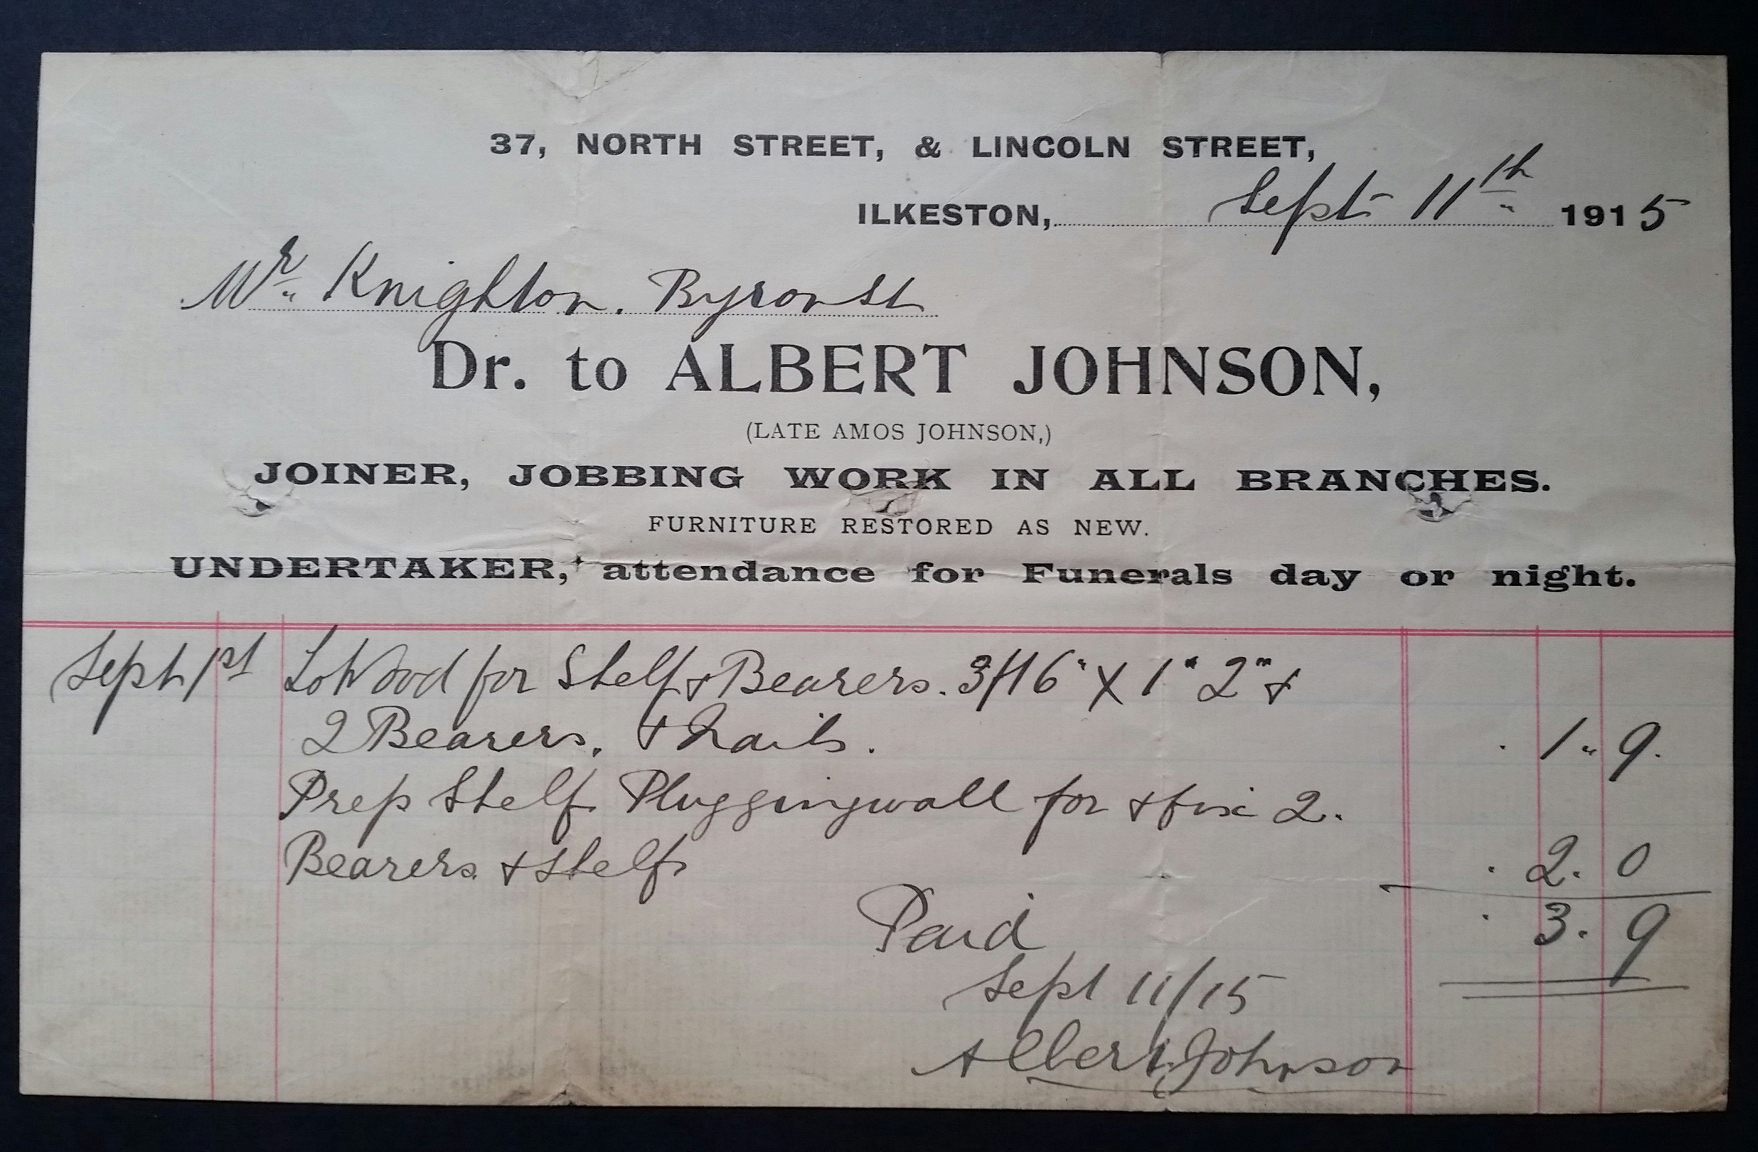 37, NORTH STREET, & LINCOLN STREET,
ILKESTON, Sept 11th 1915
Mr. Knighton. Byron St
Dr. to ALBERT JOHNSON,
(LATE AMOS JOHNSON,)
JOINER, JOBBING WORK IN ALL BRANCHES.
FURNITURE RESTORED AS NEW.
UNDERTAKER, attendance for Funerals day or night.
Sept 1st To Wood for Shelf & Bearers. 3/16" X 1" 2" &
2 Bearers, & Nails. 1 " 9.
Prep Shelf Plugging wall for & fix 2.
Bearers & Shelf 2. 0
Paid 3. 9
Sept 11/15
Albert Johnson